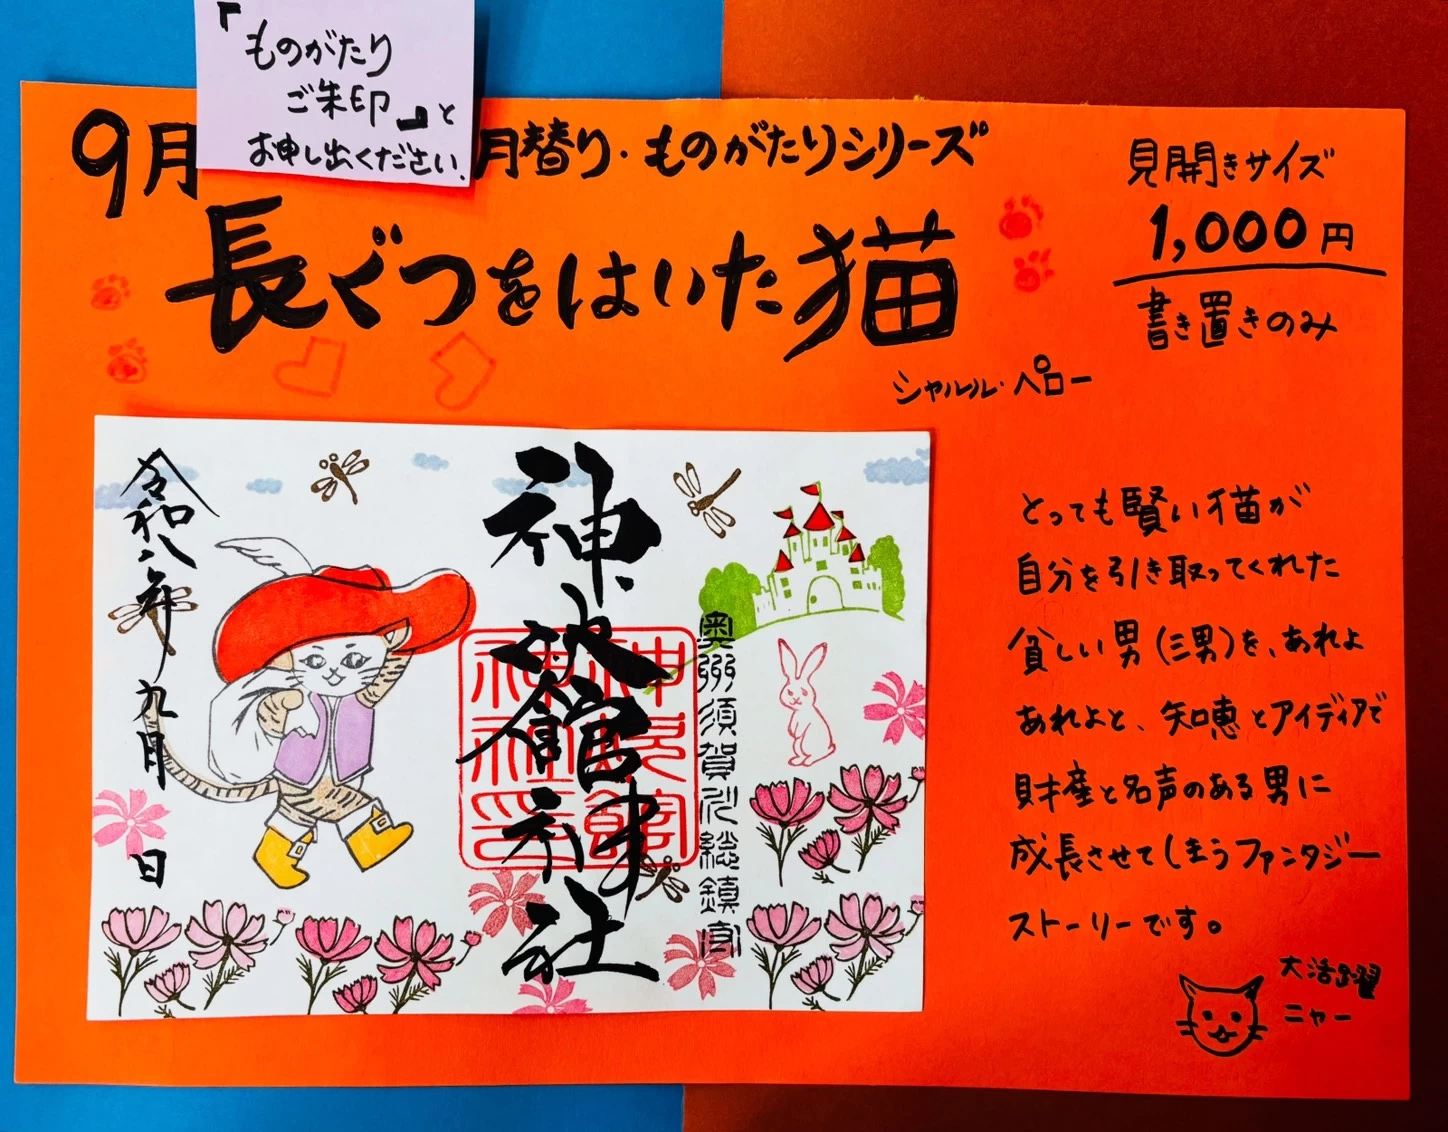 『ものがたり
ご朱印』と
お申し出ください.
9月
月替り・ものがたりシリーズ
長ぐつをはいた猫
シャルル・ペロー
見開きサイズ
1,000円
書き置きのみ
奥州須賀川総鎮守
神炊館神社
令和八年九月 日
とっても賢い猫が
自分を引き取ってくれた
貧しい男(三男)を、あれよ
あれよと、知恵とアイディアで
財産と名声のある男に
成長させてしまうファンタジー
ストーリーです。
大活躍
ニャー